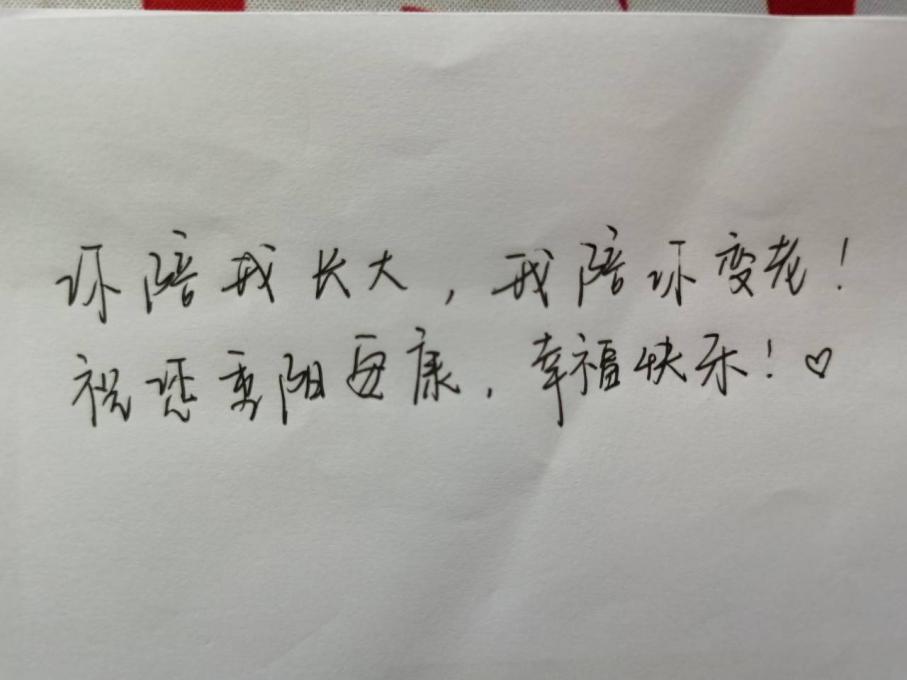 你陪我长大，我陪你变老！
祝您重阳安康，幸福快乐！♡